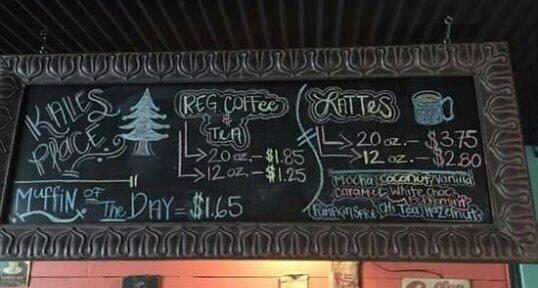 Kalles
Place
Muffin of
The Day = $1.65
Reg Coffee
&
Tea
20 oz. - $1.85
12 oz. - $1.25
Lattes
20 oz. - $3.75
12 oz. - $2.80
Mocha Coconut Vanilla
Caramel White Choc
Peppermint
Pumpkin Spice Chi Tea Hazelnut